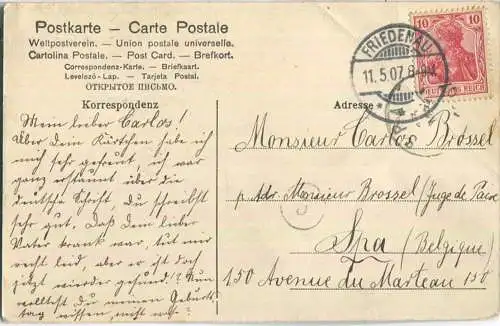 Postkarte – Carte Postale
Weltpostverein. – Union postale universelle.
Cartolina Postale. – Post Card. – Brefkort.
Correspondenz-Karte. – Briefkaart.
Levelező-Lap. – Tarjeta Postal.
ОТКРЫТОЕ ПИСЬМО.
Korrespondenz
Adresse
FRIEDENAU
11.5.07. 8-9V.
10 10
DEUTSCHES REICH
Mein lieber Carlos!
Über dein Kärtchen habe ich
mich sehr gefreut, ich war
ganz erstaunt über die
deutsche Schrift, du schreibst
sehr gut. Daß dein lieber
Vater krank war, tut mir
recht leid, aber er ist doch
jetzt wieder gesund? Nun
wolltest du meinen Geburts-
tag wissen, nicht
Monsieur Carlos Brossel
p. Adr. Monsieur Brossel (Juge de Paix
Spa (Belgique)
150 Avenue du Marteau 150